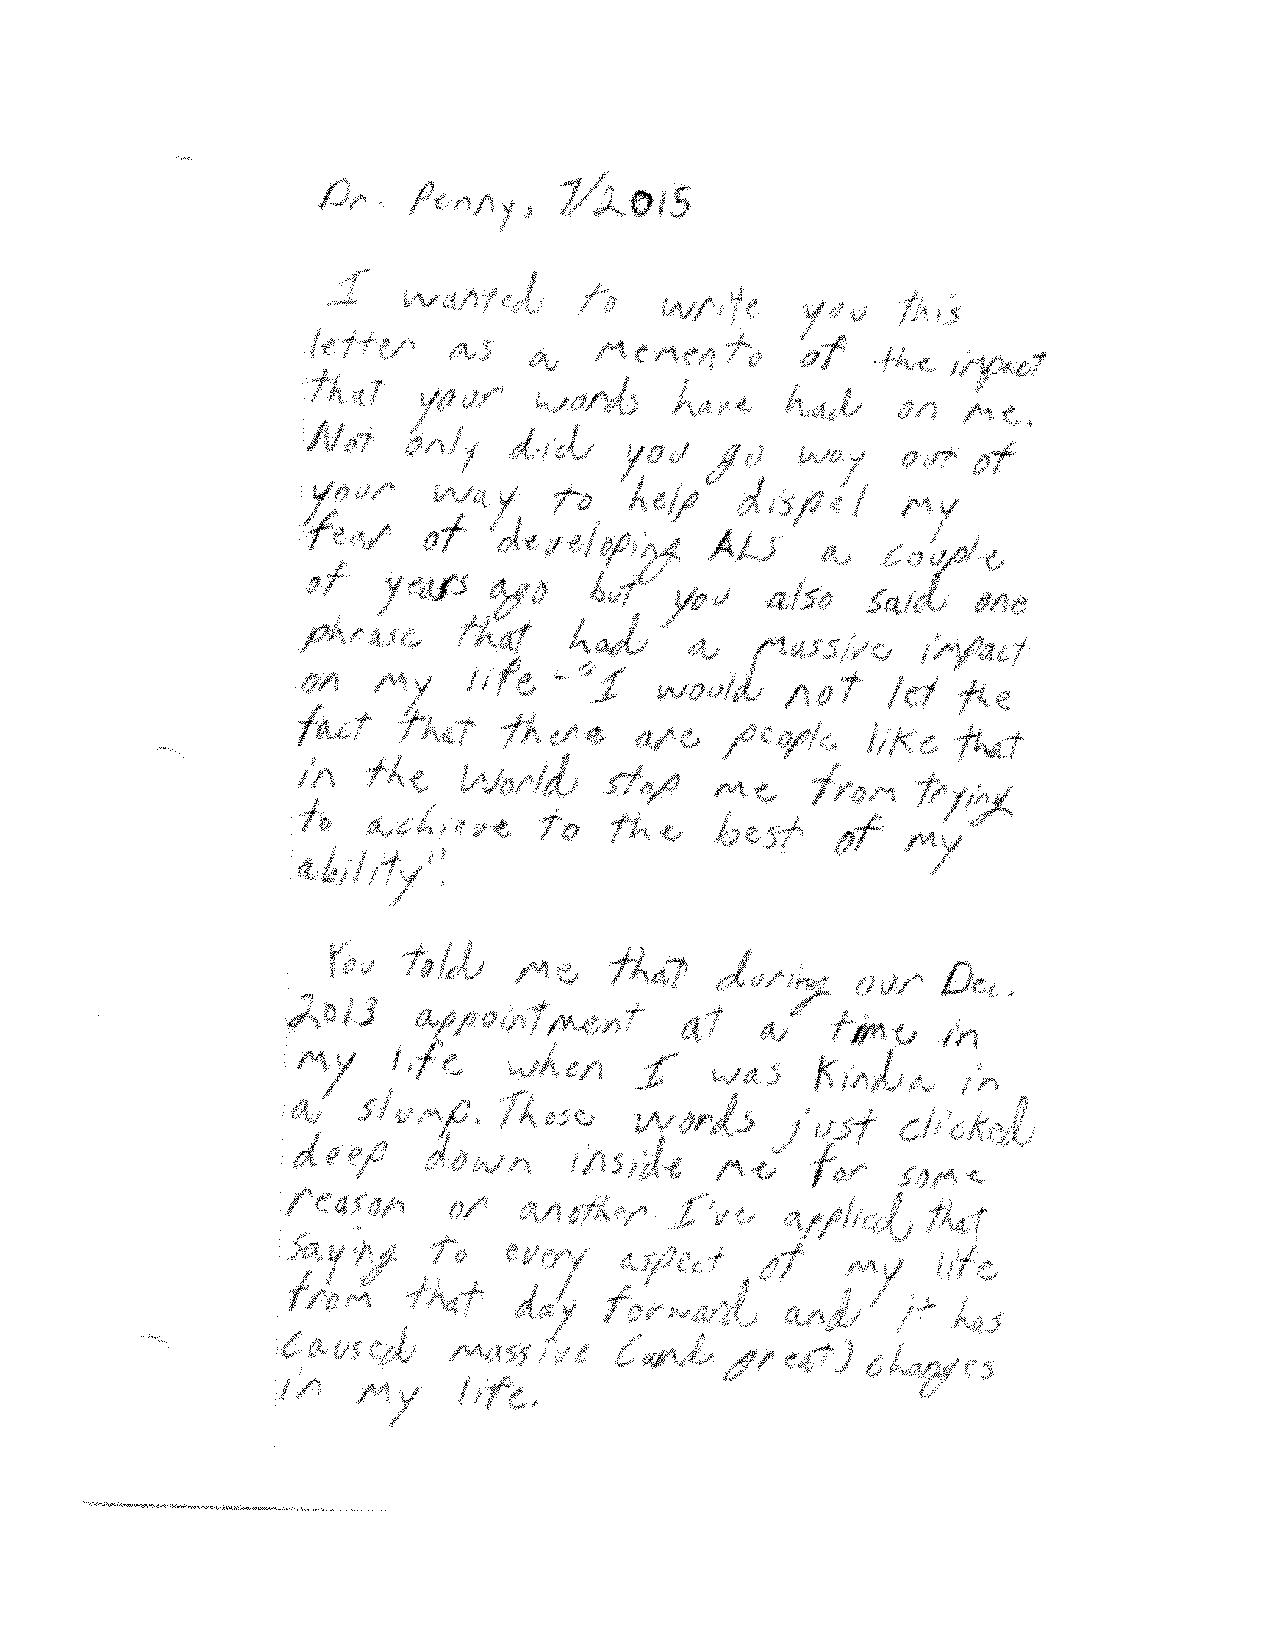 Dr. Penny, 7/2015
I wanted to write you this
letter as a memento of the impact
that your words have had on me.
Not only did you go way out of
your way to help dispel my
fear of developing ALS a couple
of years ago but you also said one
phrase that had a massive impact
on my life - "I would not let the
fact that there are people like that
in the world stop me from trying
to achieve to the best of my
ability".
You told me that during our Dec.
2013 appointment at a time in
my life when I was kinda in
a slump. Those words just clicked
deep down inside me for some
reason or another. I've applied that
saying to every aspect of my life
from that day forward and it has
caused massive (and great) changes
in my life.